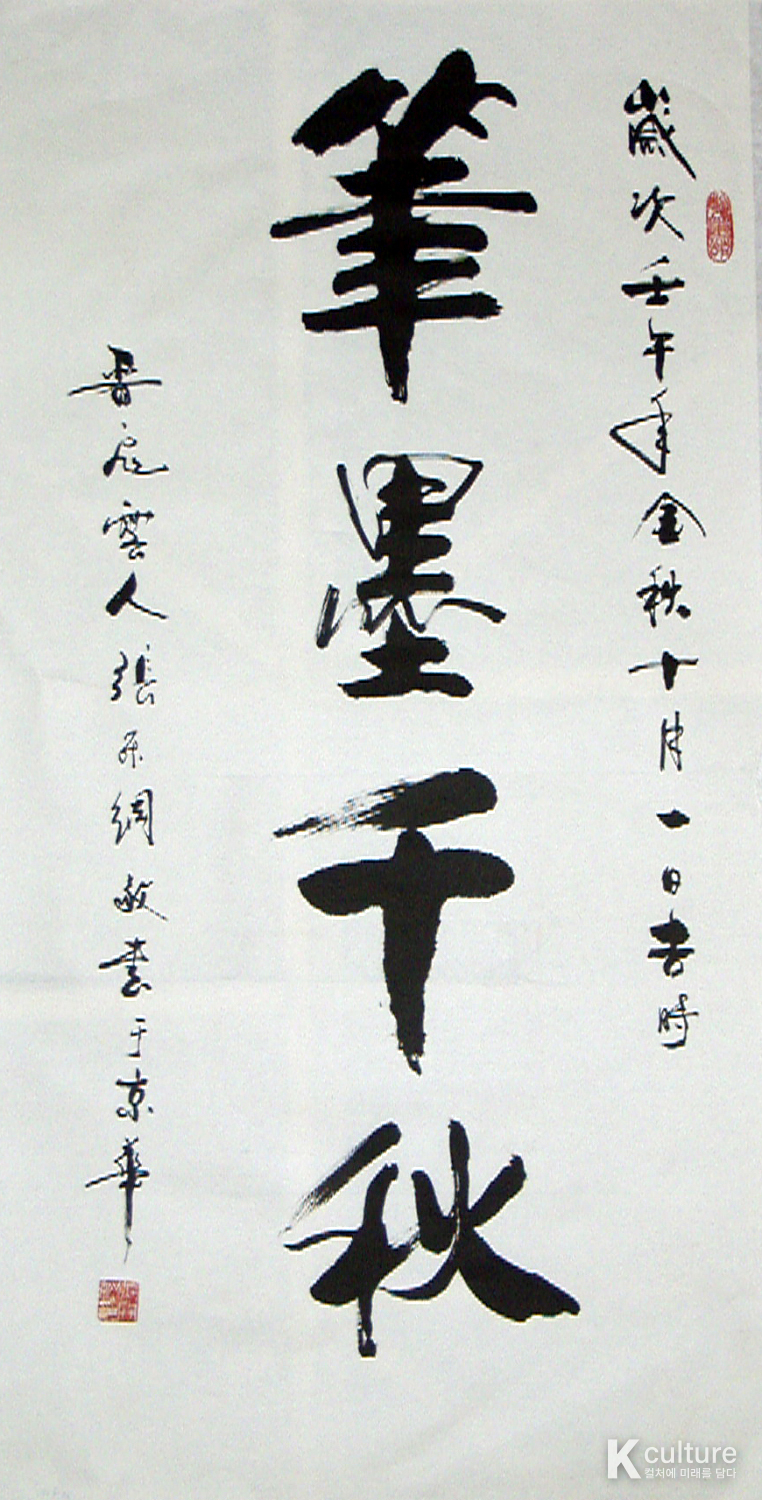 歲次壬午年金秋十月一日吉時
筆墨千秋
雲人張 綱敬書于京華
K culture
컬처에 미래를 담다